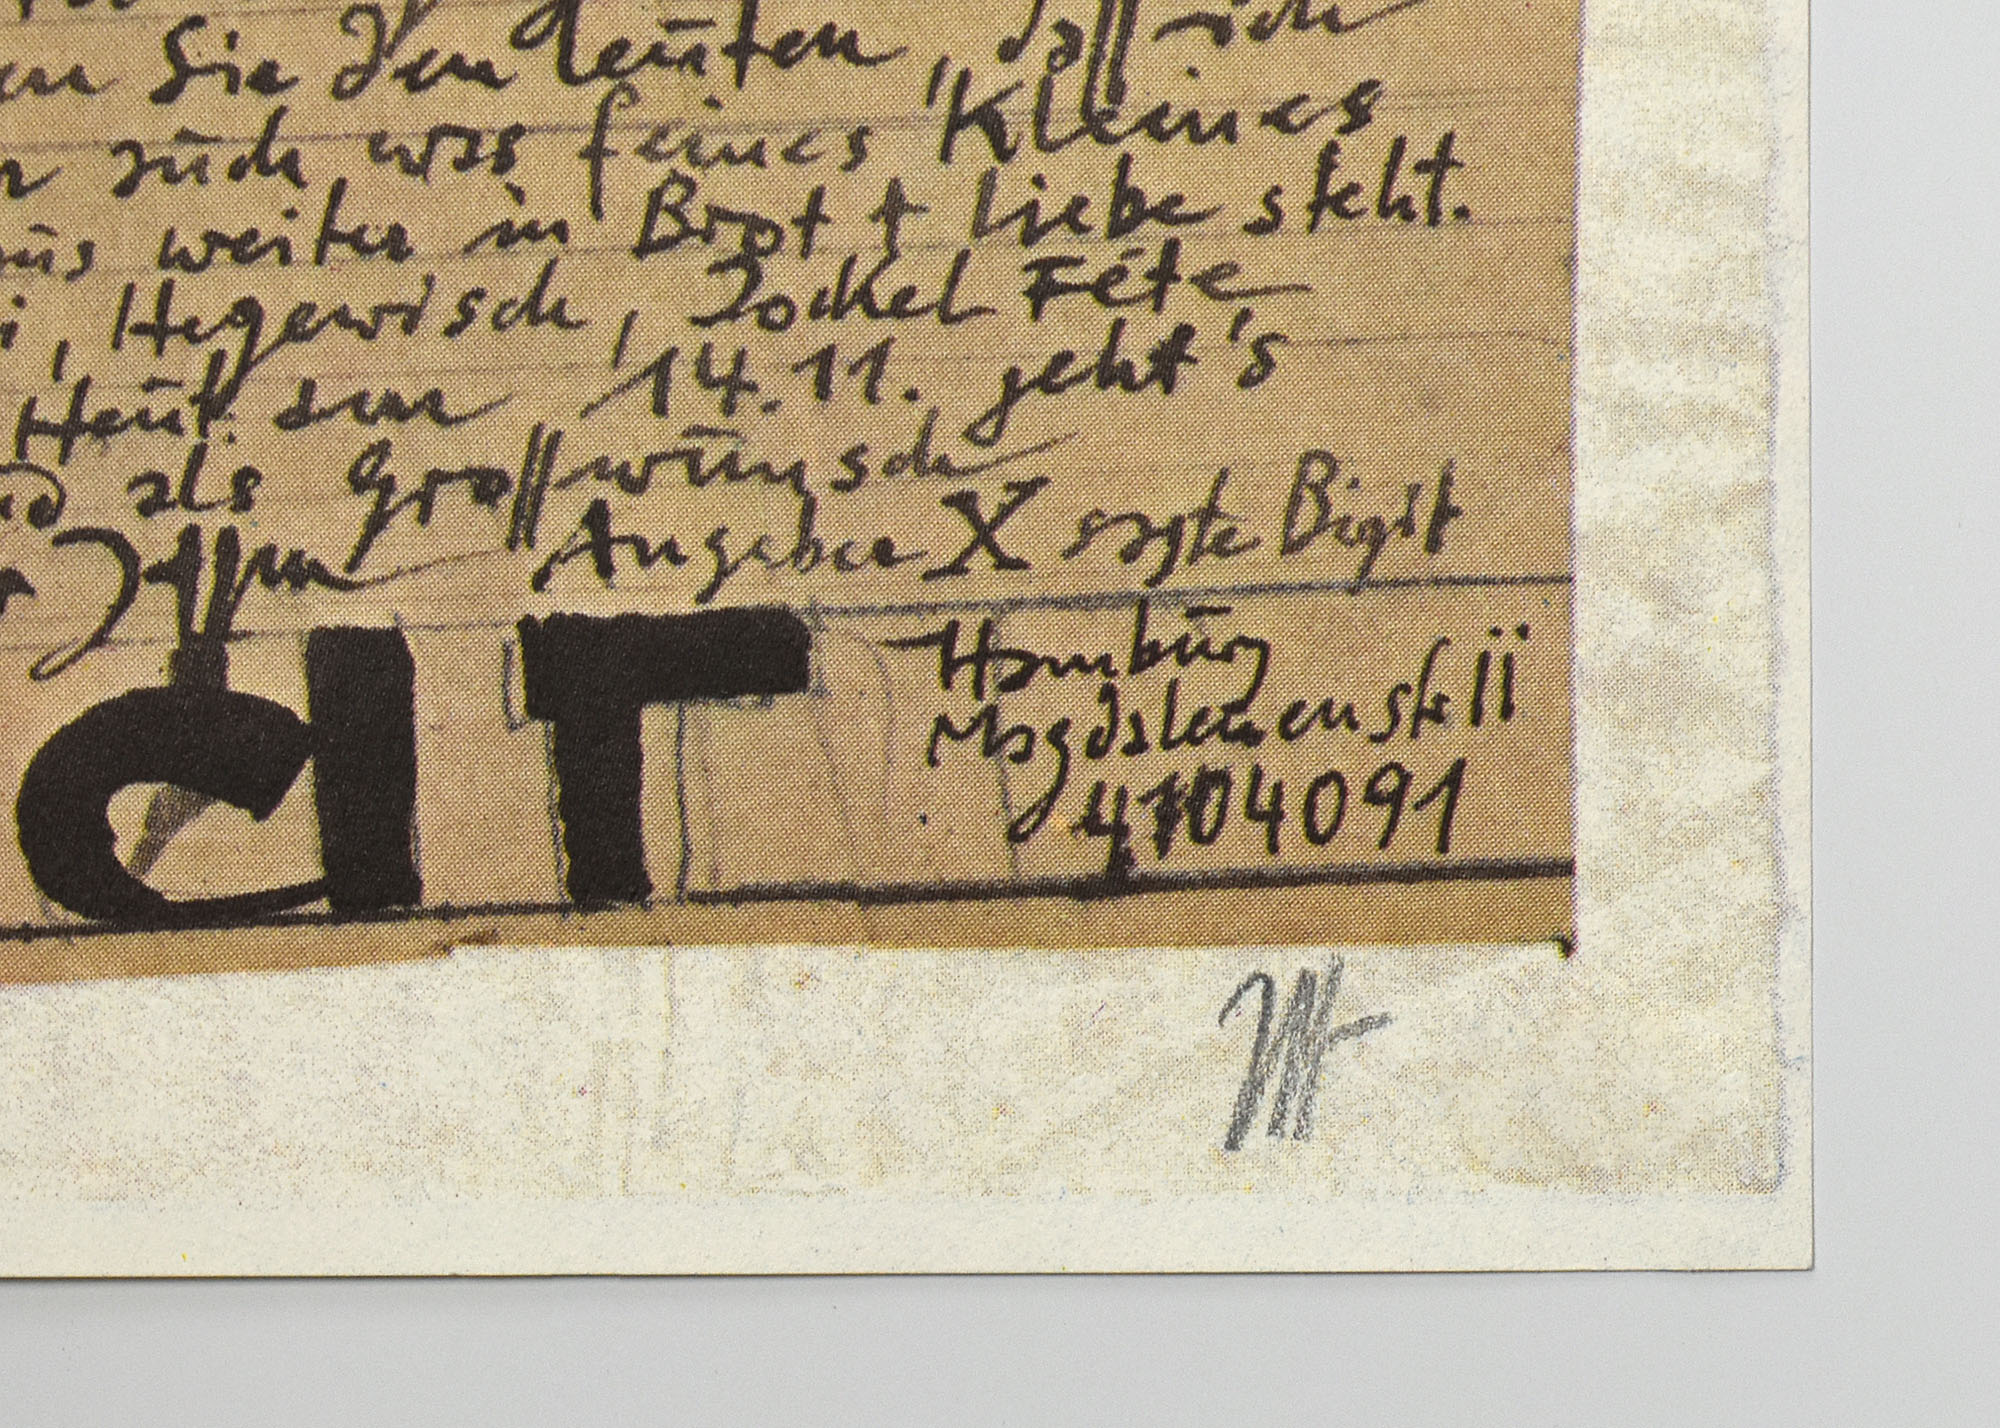 en Sie den Leuten, daß ich
auch was feines "Kleines
aus weiter in Brot + Liebe steht.
i, Hegewisch, Jockel Fete
Heut. am 14.11. geht's
als Großwunsch
Angeber X sagte Bigit
Hamburg
Magdalenenstr 11
4104091